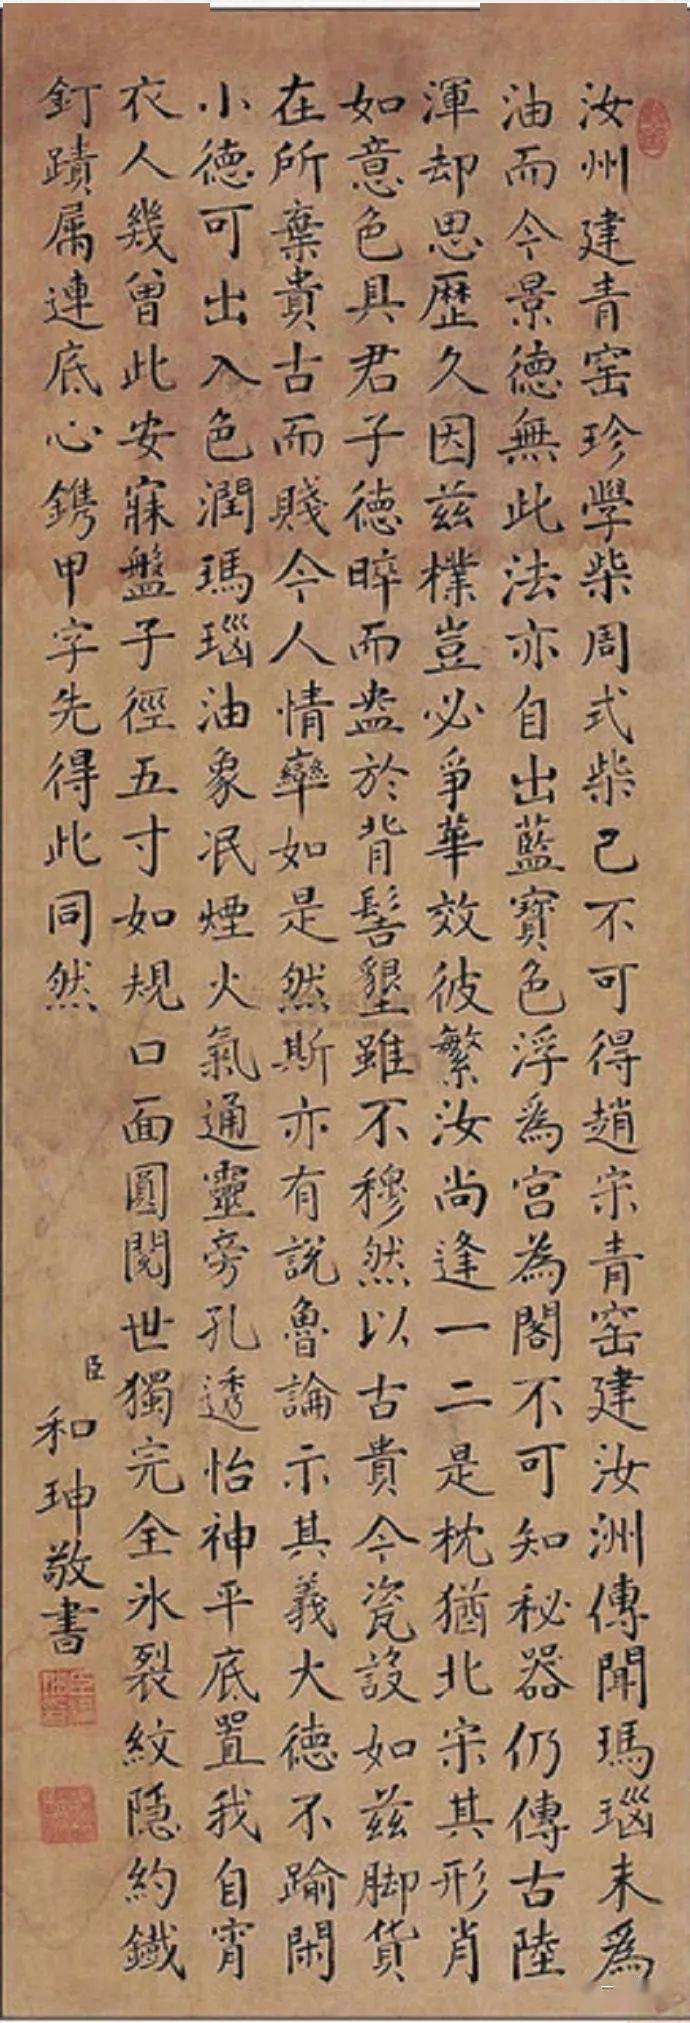 汝州建青窑珍學柴周式柴已不可得趙宋青窑建汝洲傳聞瑪瑙末為
油而今景德無此法亦自出藍寶色浮為宫為閣不可知秘器仍傳古陸
渾却思歷久因兹樸豈必爭華效彼繁汝尚逢一二是枕猶北宋其形肖
如意色具君子德晬而盎於背髻墾雖不穆然以古貴今瓷設如兹脚貨
在所棄貴古而賤今人情率如是然斯亦有說魯論示其義大德不踰閑
小德可出入色潤瑪瑙油象泯煙火氣通靈旁孔透怡神平底置我自宵
衣人幾曾此安寐盤子徑五寸如規口面圓閱世獨完全氷裂紋隱約鐵
釘蹟屬連底心鎸甲字先得此同然
臣
和珅敬書